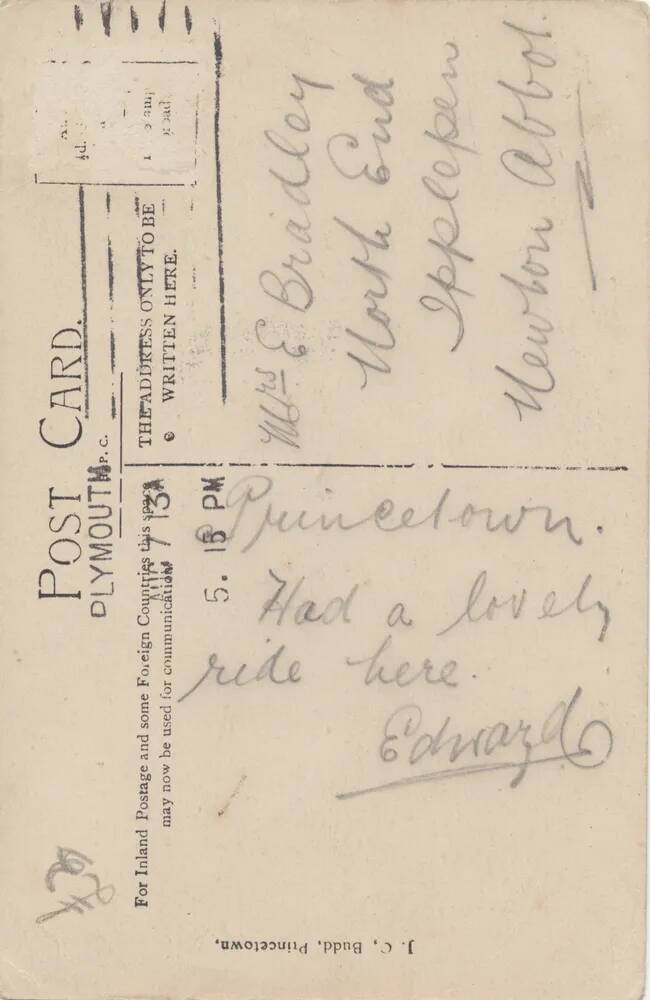 POST CARD.
PLYMOUTH
P. C.
THE ADDRESS ONLY TO BE
WRITTEN HERE.
For Inland Postage and some Foreign Countries this space
may now be used for communication
AUG 7 13
5. 15 PM
Princetown.
Had a lovely
ride here.
Edward
Mrs E Bradley
North End
Ipplepen
Newton Abbot.
J. C, Budd, Princetown,